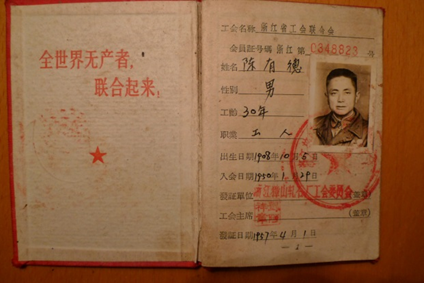 全世界无产者,
联合起来!
工会名称 浙江省工会联合会
会员証号碼 浙江 第 0348823 号
姓名 陈有德
性别 男
工龄 30年
职業 工人
出生日期 1908年10月5日
入会日期 1950年1月29日
發証單位
工会主席
發証日期 1957年4月1日